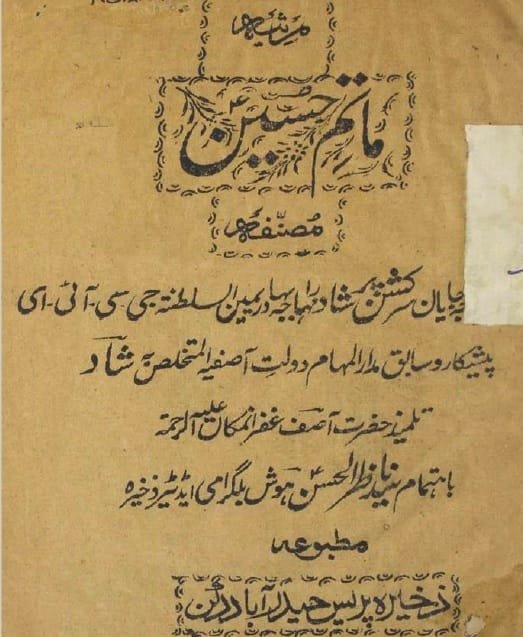 مرثیہ
ماتم حسینؑ
مصنفہ
راجہ راجایان سر کشن پرشاد مہاراجہ بہادر یمین السلطنۃ جی۔سی۔آئی۔ای
پیشکار و سابق مدارالمہام دولت آصفیہ المتخلص بہ شاد
تلمیذ حضرت آصف غفرانمکان علیہ الرحمۃ
باہتمام سید ناظر الحسن ہوش بلگرامی ایڈیٹر ذخیرہ
مطبوعہ
ذخیرہ پریس حیدرآباد دکن